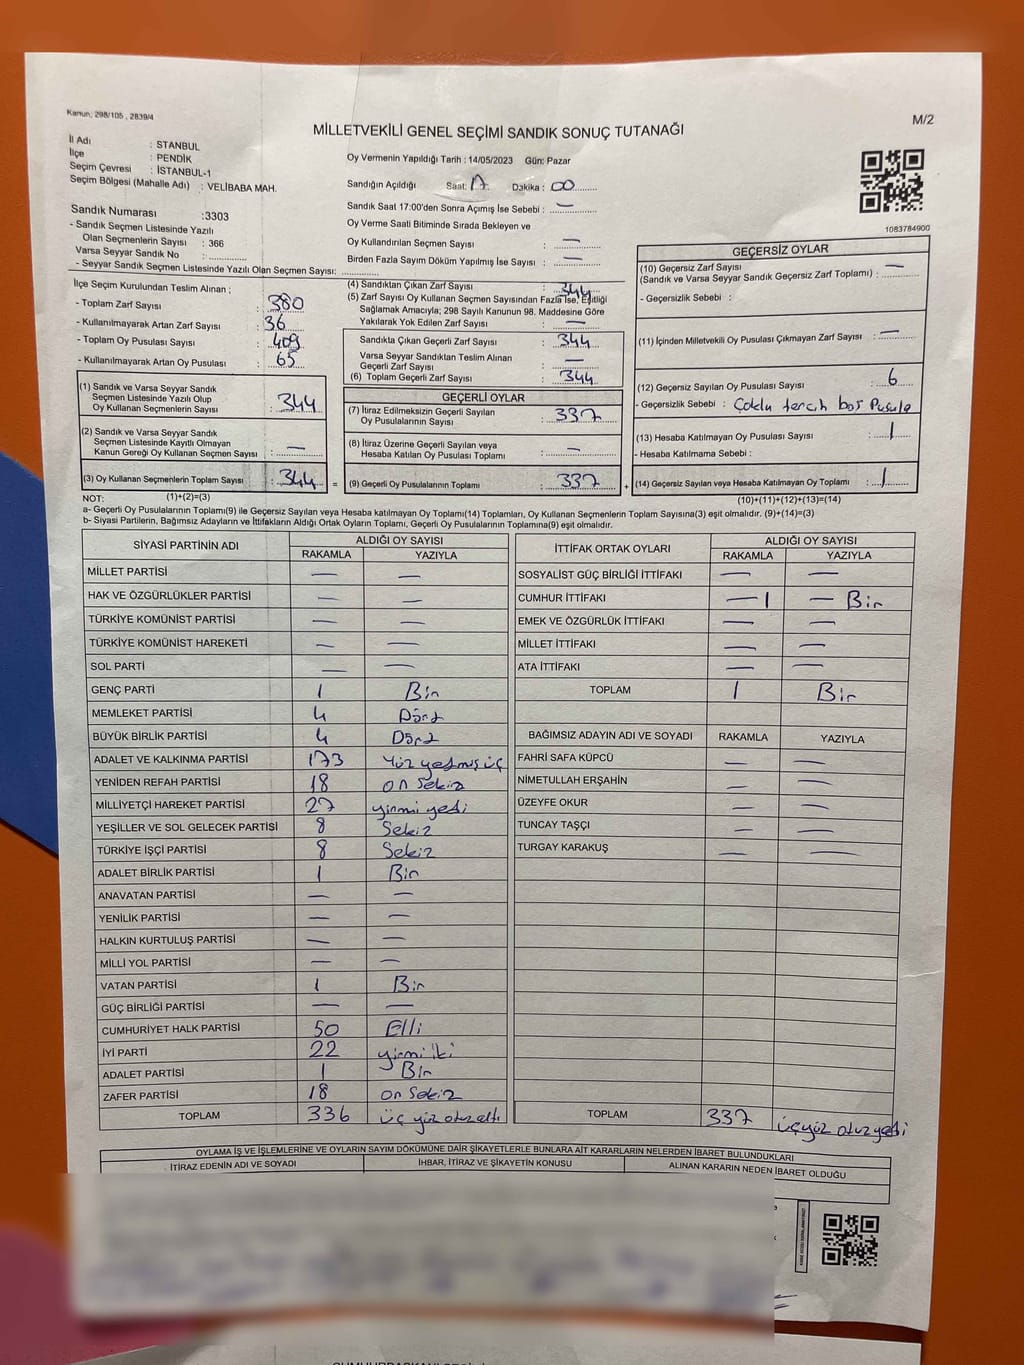 Kanun; 298/105 , 2839/4
M/2
MİLLETVEKİLİ GENEL SEÇİMİ SANDIK SONUÇ TUTANAĞI
İl Adı : STANBUL
İlçe : PENDİK
Seçim Çevresi : İSTANBUL-1
Seçim Bölgesi (Mahalle Adı) : VELİBABA MAH.
Oy Vermenin Yapıldığı Tarih : 14/05/2023 Gün: Pazar
Sandığın Açıldığı Saat: 17 Dakika : 00
Sandık Saat 17:00'den Sonra Açımış İse Sebebi : —
Oy Verme Saati Bitiminde Sırada Bekleyen ve
Oy Kullandırılan Seçmen Sayısı : —
Birden Fazla Sayım Döküm Yapılmış İse Sayısı : —
1083784900
Sandık Numarası :3303
- Sandık Seçmen Listesinde Yazılı
Olan Seçmenlerin Sayısı : 366
Varsa Seyyar Sandık No :
- Seyyar Sandık Seçmen Listesinde Yazılı Olan Seçmen Sayısı:
İlçe Seçim Kurulundan Teslim Alınan ;
- Toplam Zarf Sayısı : 380
- Kullanılmayarak Artan Zarf Sayısı : 36
- Toplam Oy Pusulası Sayısı : 409
- Kullanılmayarak Artan Oy Pusulası : 65
(1) Sandık ve Varsa Seyyar Sandık
Seçmen Listesinde Yazılı Olup
Oy Kullanan Seçmenlerin Sayısı : 344
(2) Sandık ve Varsa Seyyar Sandık
Seçmen Listesinde Kayıtlı Olmayan
Kanun Gereği Oy Kullanan Seçmen Sayısı : —
(3) Oy Kullanan Seçmenlerin Toplam Sayısı : 344 =
(4) Sandıktan Çıkan Zarf Sayısı : 344
(5) Zarf Sayısı Oy Kullanan Seçmen Sayısından Fazla İse, Eşitliği
Sağlamak Amacıyla; 298 Sayılı Kanunun 98. Maddesine Göre
Yakılarak Yok Edilen Zarf Sayısı : —
Sandıkta Çıkan Geçerli Zarf Sayısı : 344
Varsa Seyyar Sandıktan Teslim Alınan
Geçerli Zarf Sayısı : —
(6) Toplam Geçerli Zarf Sayısı : 344
GEÇERLİ OYLAR
(7) İtiraz Edilmeksizin Geçerli Sayılan
Oy Pusulalarının Sayısı : 337
(8) İtiraz Üzerine Geçerli Sayılan veya
Hesaba Katılan Oy Pusulası Toplamı : —
(9) Geçerli Oy Pusulalarının Toplamı : 337 +
GEÇERSİZ OYLAR
(10) Geçersiz Zarf Sayısı —
(Sandık ve Varsa Seyyar Sandık Geçersiz Zarf Toplamı) :
- Geçersizlik Sebebi :
(11) İçinden Milletvekili Oy Pusulası Çıkmayan Zarf Sayısı : —
(12) Geçersiz Sayılan Oy Pusulası Sayısı : 6
- Geçersizlik Sebebi : Çoklu tercih boş Pusula
(13) Hesaba Katılmayan Oy Pusulası Sayısı : 1
- Hesaba Katılmama Sebebi :
(14) Geçersiz Sayılan veya Hesaba Katılmayan Oy Toplamı : 1
NOT: (1)+(2)=(3)
(10)+(11)+(12)+(13)=(14)
a- Geçerli Oy Pusulalarının Toplamı(9) ile Geçersiz Sayılan veya Hesaba katılmayan Oy Toplamı(14) Toplamları, Oy Kullanan Seçmenlerin Toplam Sayısına(3) eşit olmalıdır. (9)+(14)=(3)
b- Siyasi Partilerin, Bağımsız Adayların ve İttifakların Aldığı Ortak Oyların Toplamı, Geçerli Oy Pusulalarının Toplamına(9) eşit olmalıdır.
SİYASİ PARTİNİN ADI ALDIĞI OY SAYISI
RAKAMLA YAZIYLA
MİLLET PARTİSİ — —
HAK VE ÖZGÜRLÜKLER PARTİSİ — —
TÜRKİYE KOMÜNİST PARTİSİ — —
TÜRKİYE KOMÜNİST HAREKETİ — —
SOL PARTİ — —
GENÇ PARTİ 1 Bir
MEMLEKET PARTİSİ 4 Dört
BÜYÜK BİRLİK PARTİSİ 4 Dört
ADALET VE KALKINMA PARTİSİ 173 Yüz yetmiş üç
YENİDEN REFAH PARTİSİ 18 on Sekiz
MİLLİYETÇİ HAREKET PARTİSİ 27 yirmi yedi
YEŞİLLER VE SOL GELECEK PARTİSİ 8 Sekiz
TÜRKİYE İŞÇİ PARTİSİ 8 Sekiz
ADALET BİRLİK PARTİSİ 1 Bir
ANAVATAN PARTİSİ — —
YENİLİK PARTİSİ — —
HALKIN KURTULUŞ PARTİSİ — —
MİLLİ YOL PARTİSİ — —
VATAN PARTİSİ 1 Bir
GÜÇ BİRLİĞİ PARTİSİ — —
CUMHURİYET HALK PARTİSİ 50 Elli
İYİ PARTİ 22 yirmi iki
ADALET PARTİSİ 1 Bir
ZAFER PARTİSİ 18 on Sekiz
TOPLAM 336 üç yüz otuz altı
İTTİFAK ORTAK OYLARI ALDIĞI OY SAYISI
RAKAMLA YAZIYLA
SOSYALİST GÜÇ BİRLİĞİ İTTİFAKI — —
CUMHUR İTTİFAKI — 1 — Bir
EMEK VE ÖZGÜRLÜK İTTİFAKI — —
MİLLET İTTİFAKI — —
ATA İTTİFAKI — —
TOPLAM 1 Bir
BAĞIMSIZ ADAYIN ADI VE SOYADI RAKAMLA YAZIYLA
FAHRİ SAFA KÜPCÜ — —
NİMETULLAH ERŞAHİN — —
ÜZEYFE OKUR — —
TUNCAY TAŞÇI — —
TURGAY KARAKUŞ — —
TOPLAM 337 üçyüz otuz yedi
OYLAMA İŞ VE İŞLEMLERİNE VE OYLARIN SAYIM DÖKÜMÜNE DAİR ŞİKAYETLERLE BUNLARA AİT KARARLARIN NELERDEN İBARET BULUNDUKLARI
İTİRAZ EDENİN ADI VE SOYADI İHBAR, İTİRAZ VE ŞİKAYETİN KONUSU ALINAN KARARIN NEDEN İBARET OLDUĞU